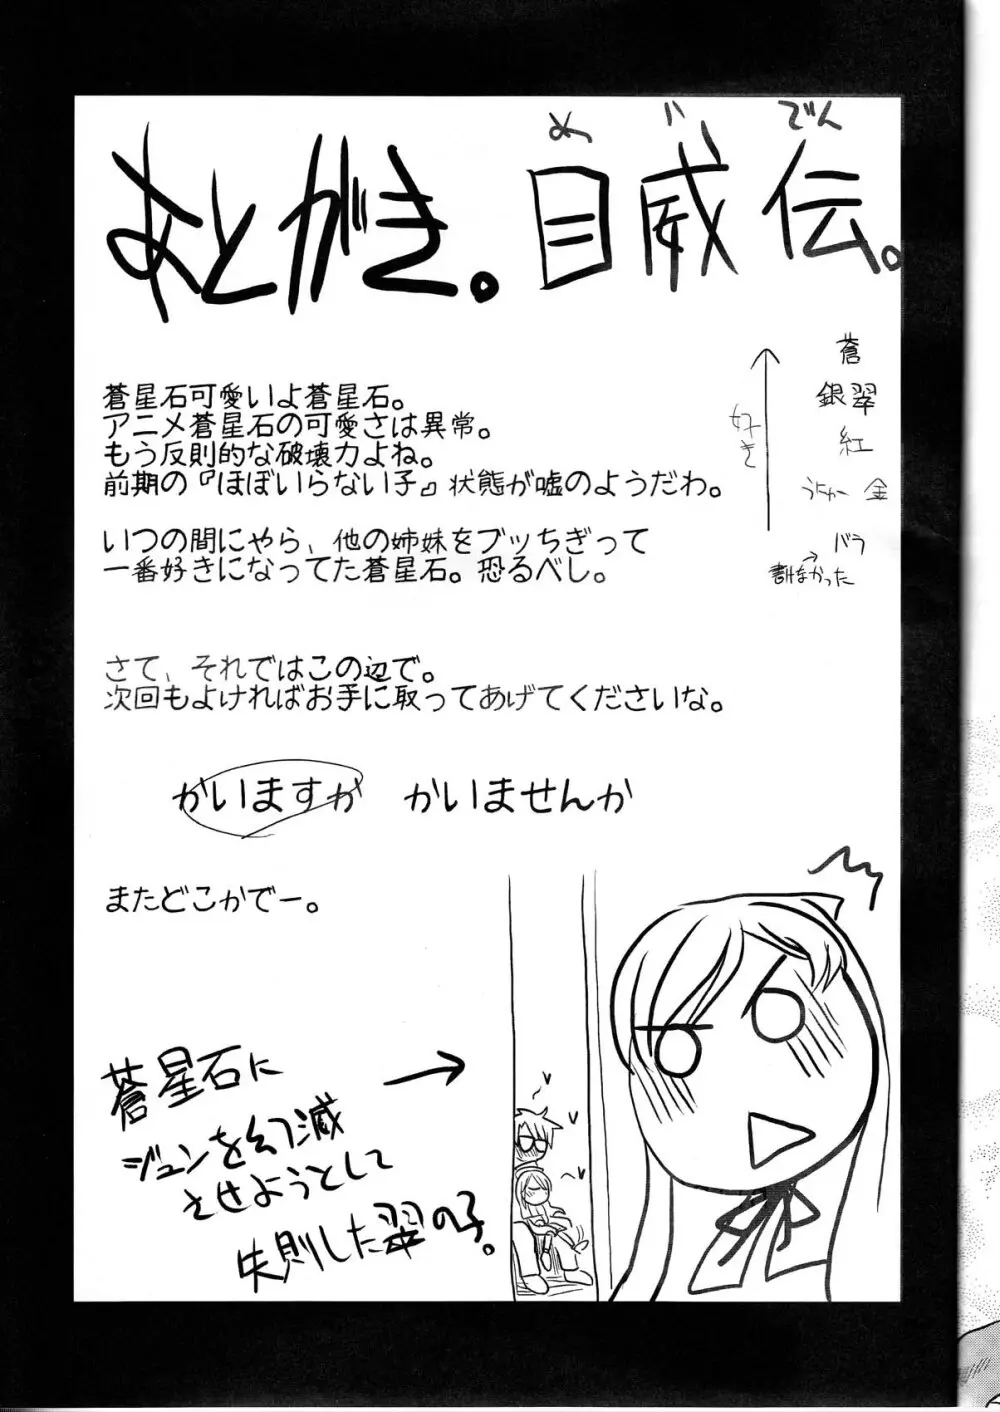 あとがき。目威伝。
めいでん
蒼星石可愛いよ蒼星石。
アニメ蒼星石の可愛さは異常。
もう反則的な破壊力よね。
前期の『ほぼいらない子』状態が嘘のようだわ。
いつの間にやら、他の姉妹をブッちぎって
一番好きになってた蒼星石。恐るべし。
好き
蒼
銀翠
紅
金
バラ
→書けなかった
さて、それではこの辺で。
次回もよければお手に取ってあげてくださいな。
かいますか かいませんか
またどこかでー。
蒼星石に
ジュンを幻滅
させようとして
失則した翠の子。